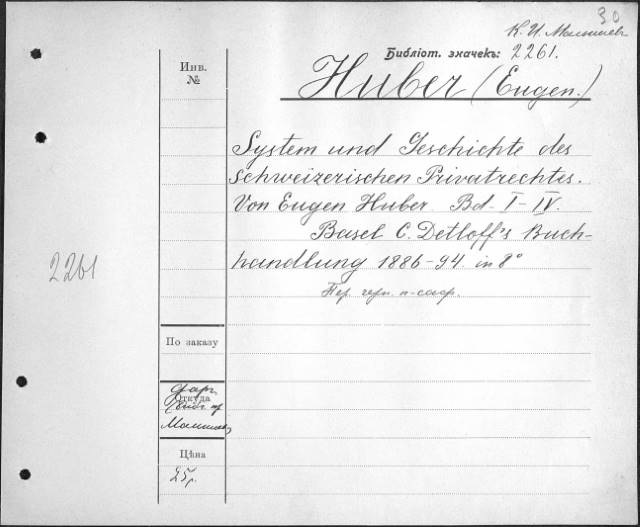 30
К. И. Малышев
Библіот. значекъ: 2261.
Инв.
№
Huber (Eugen.)
System und Geschichte des
schweizerischen Privatrechtes.
Von Eugen Huber Bd. I-IV.
Basel C. Detloff's Buch-
handlung 1886-94. in 8°
Пер. черн.
2261
По заказу
Откуда
Малышева
Цѣна
25р.